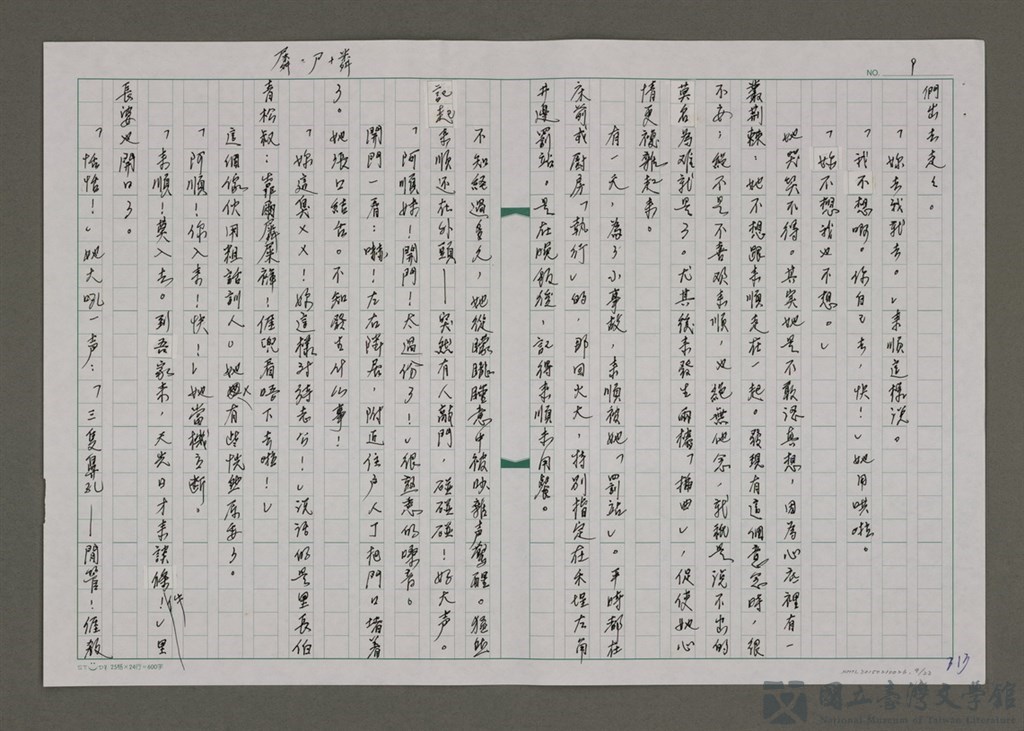 羼·尸+粦
NO. 9
們出去走々。
「妳去我就去。」來順這樣說。
「我不想啊。你自己去，快！」她用哄啦。
「妳不想我也不想。」
她哭笑不得。其實她是不敢認真想，因爲心底裡有一
叢荆棘：她不想跟來順走在一起。發現有這個意念時，很
不安；絕不是不喜歡來順，也絕無他念，就就是說不出的
莫名為难就是了。尤其後來發生兩樁「插曲」，促使她心
情更複雜起來。
有一天，為了小事故，來順被她「罰站」。平時都在
床前或厨房「執行」的，那回火大，特別指定在禾埕左角
井邊罰站。是在晚飯後，記得來順未用餐。
不知經過多久，她從矇矓睡意中被吵雜声驚醒。猛然
記起來順还在外頭——突然有人敲門，碰碰碰！好大声。
「阿順妹！開門！太過份了！」很熟悉的嗓音。
開門一看：嚇！左右隣居，附近住户人丁把門口堵着
了。她張口結舌。不知發生什么事！
「妳這臭××！妳這樣对待老公！」說话的是里長伯
青松叔：「靠爾屌屎褲！𠊎兜看唔下去啦！」
這個傢伙用粗話訓人。她有些恍然原委了。
「阿順！你入來！快！」她當機立断。
「來順！莫入去。到吾家來，天光日才來談條件！」里
長婆也開口了。
「恬恬！」她大吼一声：「三隻鼻孔——閒管！𠊎教
25格×24行=600字
313
國立臺灣文學館
National Museum of Taiwan Literature